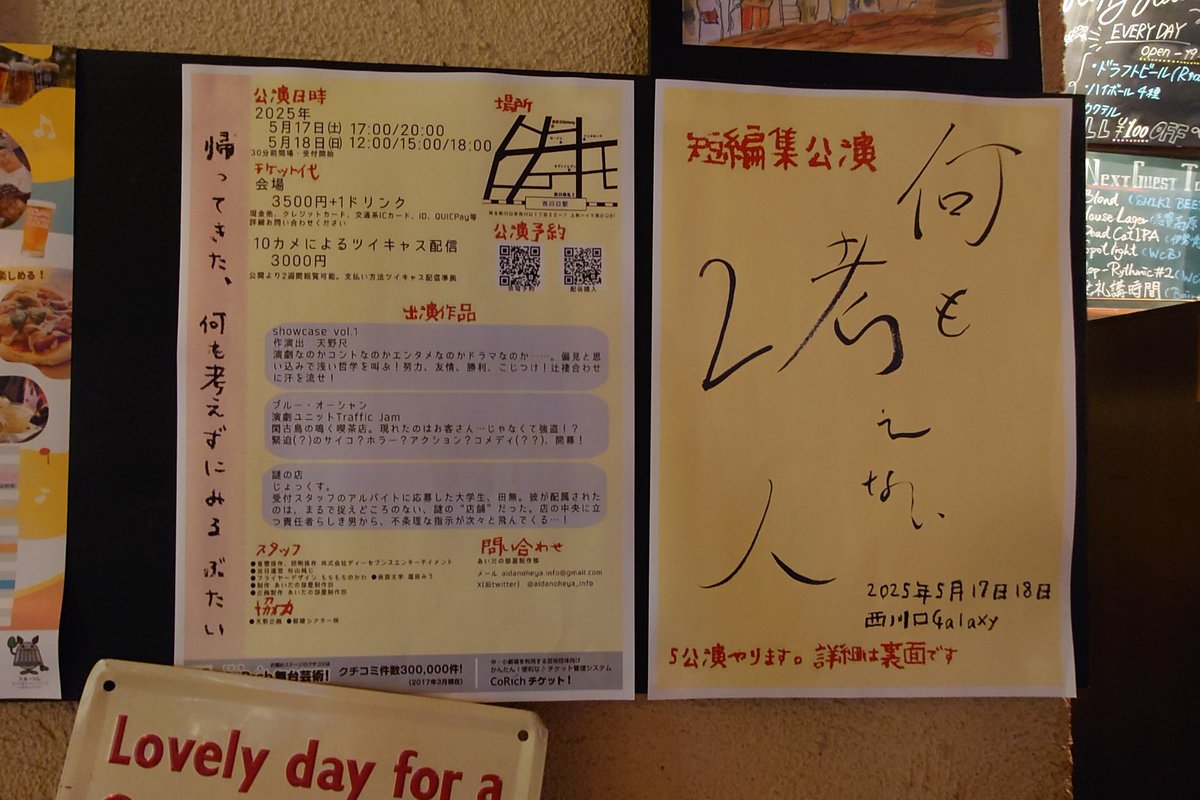 帰ってきた、何も考えずにみるぶたい
公演日時
2025年
5月17日(土) 17:00/20:00
5月18日(日) 12:00/15:00/18:00
30分前開場・受付開始
チケット代
会場
3500円+1ドリンク
現金他、クレジットカード、交通系ICカード、iD、QUICPay等
詳細お問い合わせください
10カメによるツイキャス配信
3000円
公開より2週間観覧可能。支払い方法ツイキャス配信準拠
場所
西川口駅
公演予約
会場予約
配信購入
出演作品
showcase vol.1
作演出 天野尺
演劇なのかコントなのかエンタメなのかドラマなのか……。偏見と思
い込みで浅い哲学を叫ぶ!努力、友情、勝利、こじつけ!辻褄合わせ
に汗を流せ!
ブルー・オーシャン
演劇ユニットTraffic Jam
閑古鳥の鳴く喫茶店。現れたのはお客さん…じゃなくて強盗!?
緊迫(?)のサイコ?ホラー?アクション?コメディ(??)、開幕!
謎の店
じょっくす。
受付スタッフのアルバイトに応募した大学生、田無。彼が配属された
のは、まるで捉えどころのない、謎の"店舗"だった。店の中央に立
つ責任者らしき男から、不条理な指示が次々と飛んでくる…!
スタッフ
●音響操作、照明操作 株式会社ディーセブンスエンターテイメント
●当日運営 杉山純じ
●フライヤーデザイン もちもちのかわ ●表題文字 蓮詠みう
●制作 あいだの部屋制作部
●企画製作 あいだの部屋制作部
協力
●天野企画 ●板橋シアター球
問い合わせ
あいだの部屋制作部
メール aidanoheya.info@gmail.com
X(旧twitter) @aidanoheya_info
お薦めステージのクチコミは
舞台芸術!
クチコミ件数300,000件!
(2017年3月現在)
中・小劇場を利用する芸術団体向け
かんたん!便利な♪チケット管理システム
CoRich チケット!
短編集公演
何も
考えない
2人
2025年5月17日18日
西川口Galaxy
5公演やります。詳細は裏面です
EVERYDAY
open-19
・ドラフトビール
・ハイボール4種
カクテル
¥100 OFF
Next Guest
Blond
House Lager
Dead Cat IPA
Spotlight (WCB)
Hop-Rythmic #2
札講時間
楽しめる!
Lovely day for a